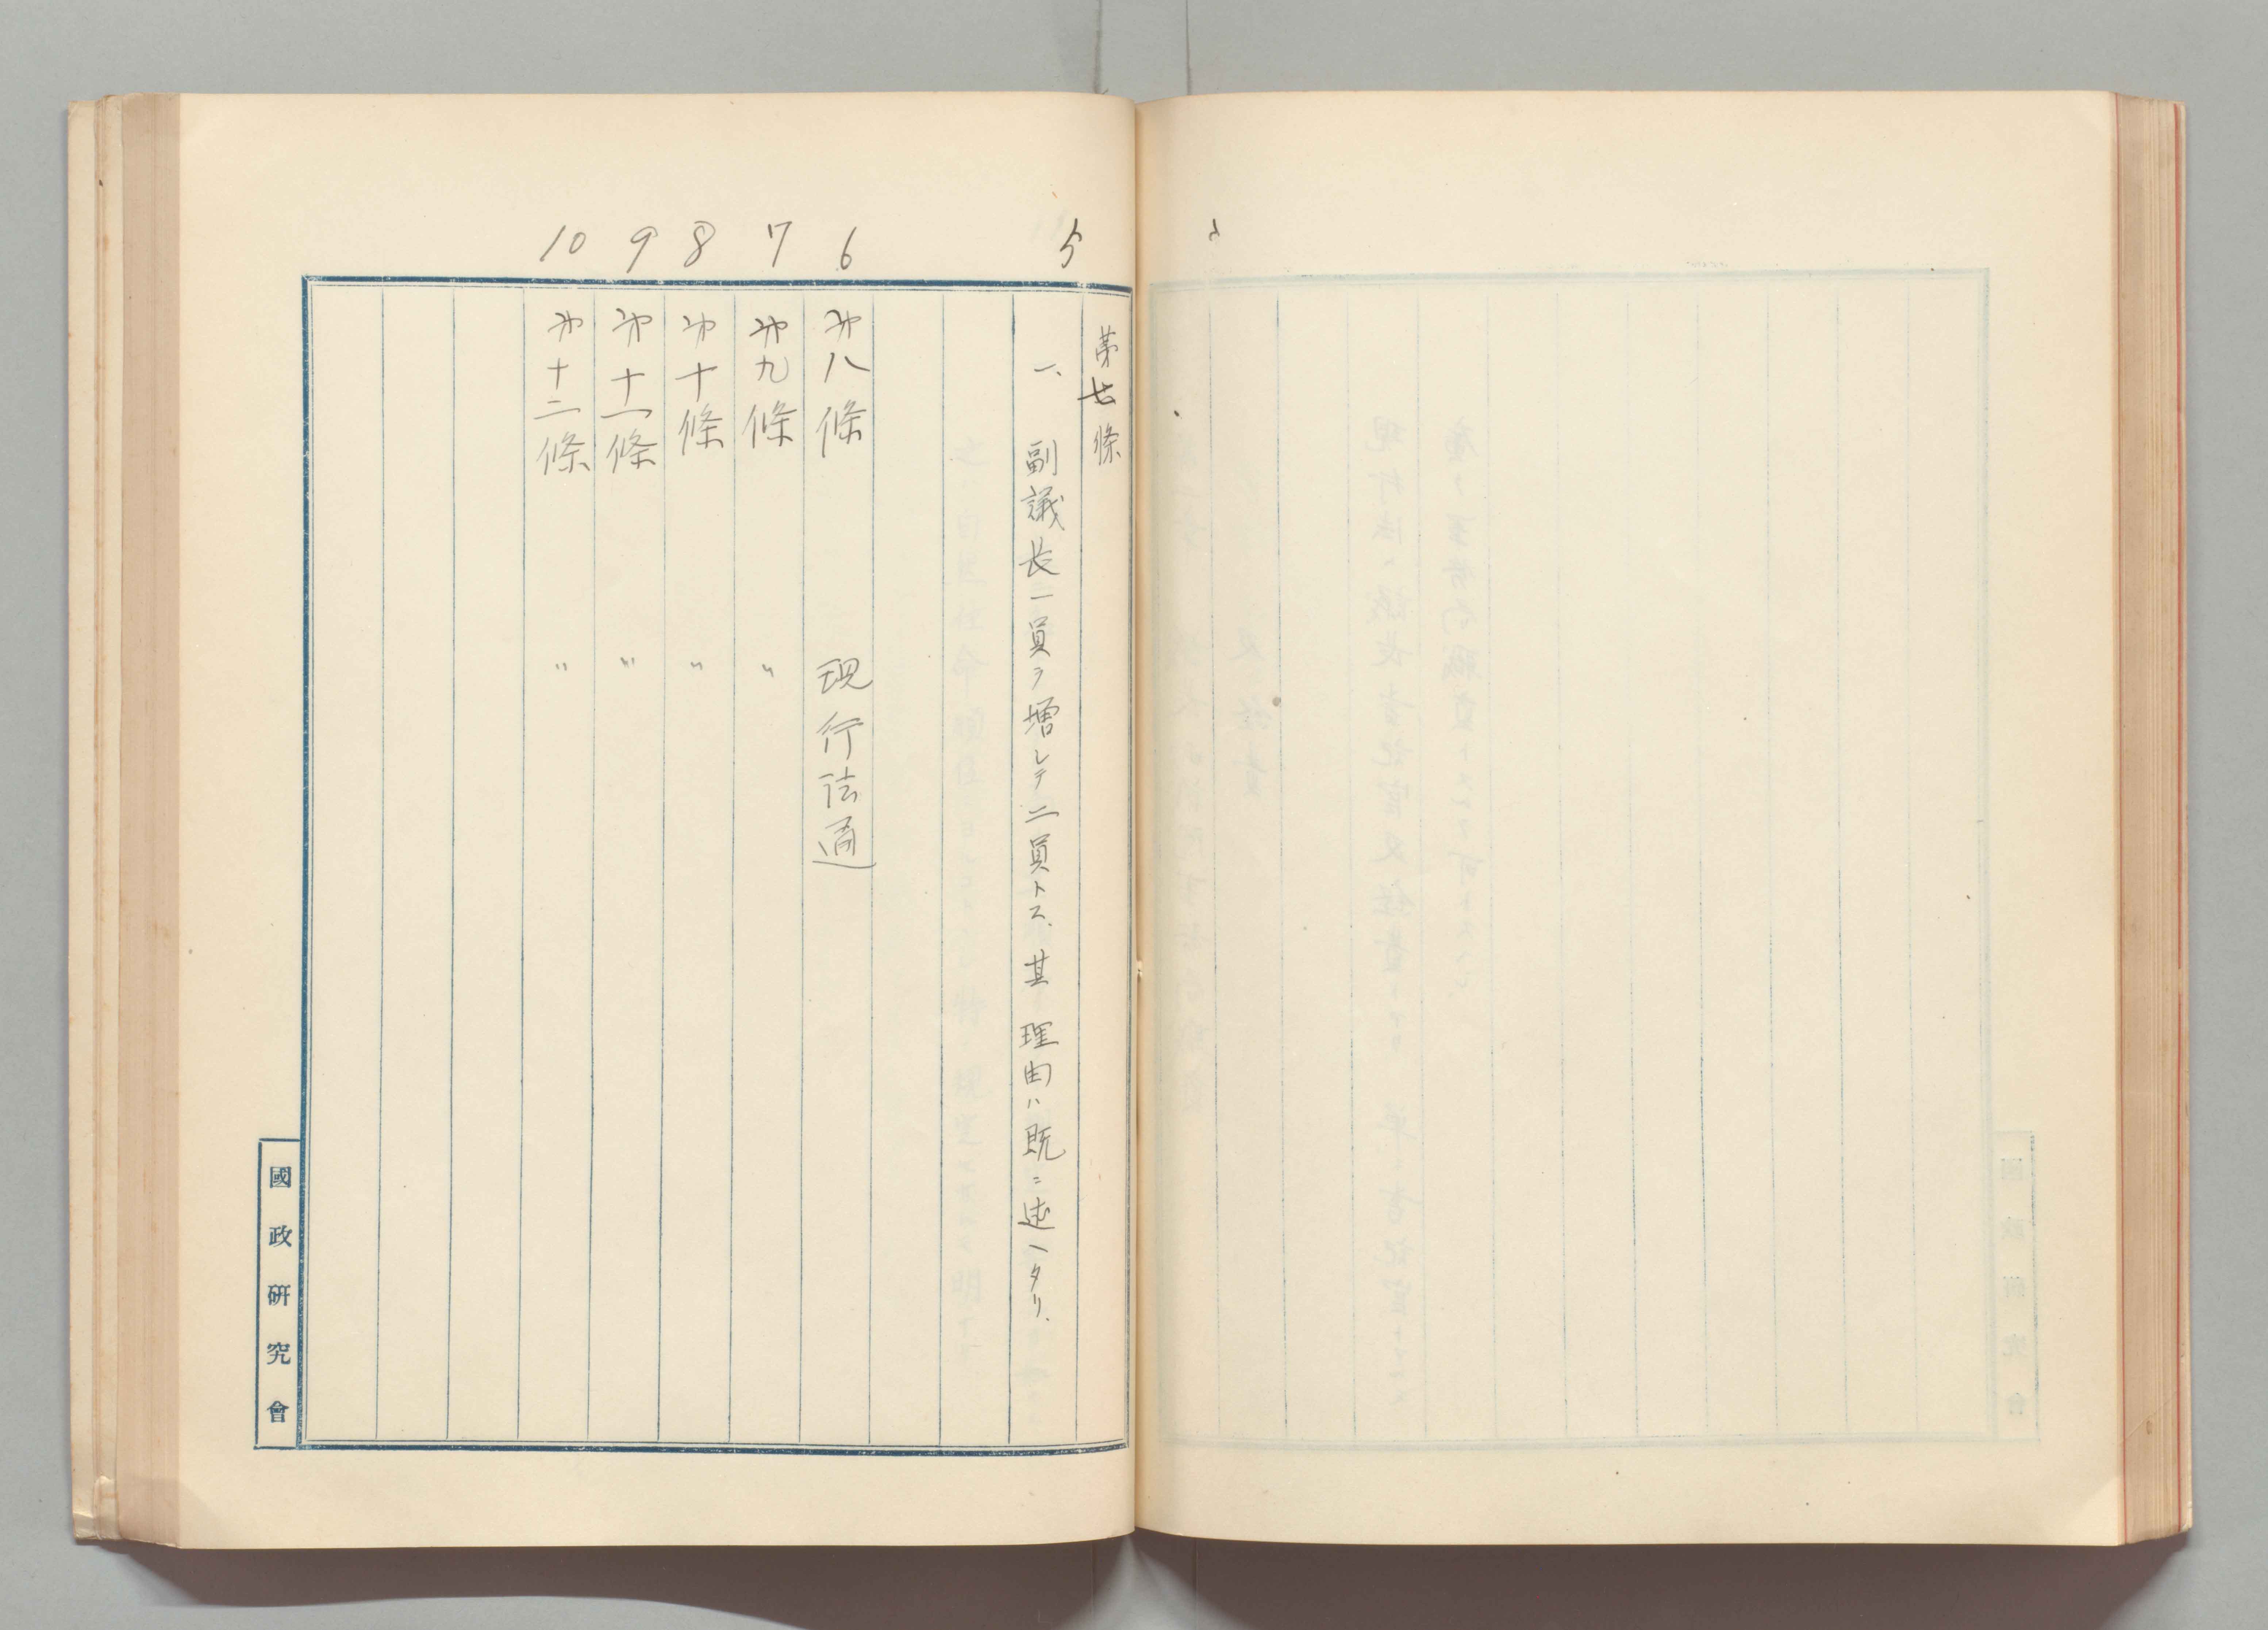 5
第七條
一、副議長一員ヲ増シテ二員トス、其理由ハ既ニ述ヘタリ、
6
第八條 現行法通
7
第九條 〃
8
第十條 〃
9
第十一條 〃
10
第十二條 〃
國政研究會